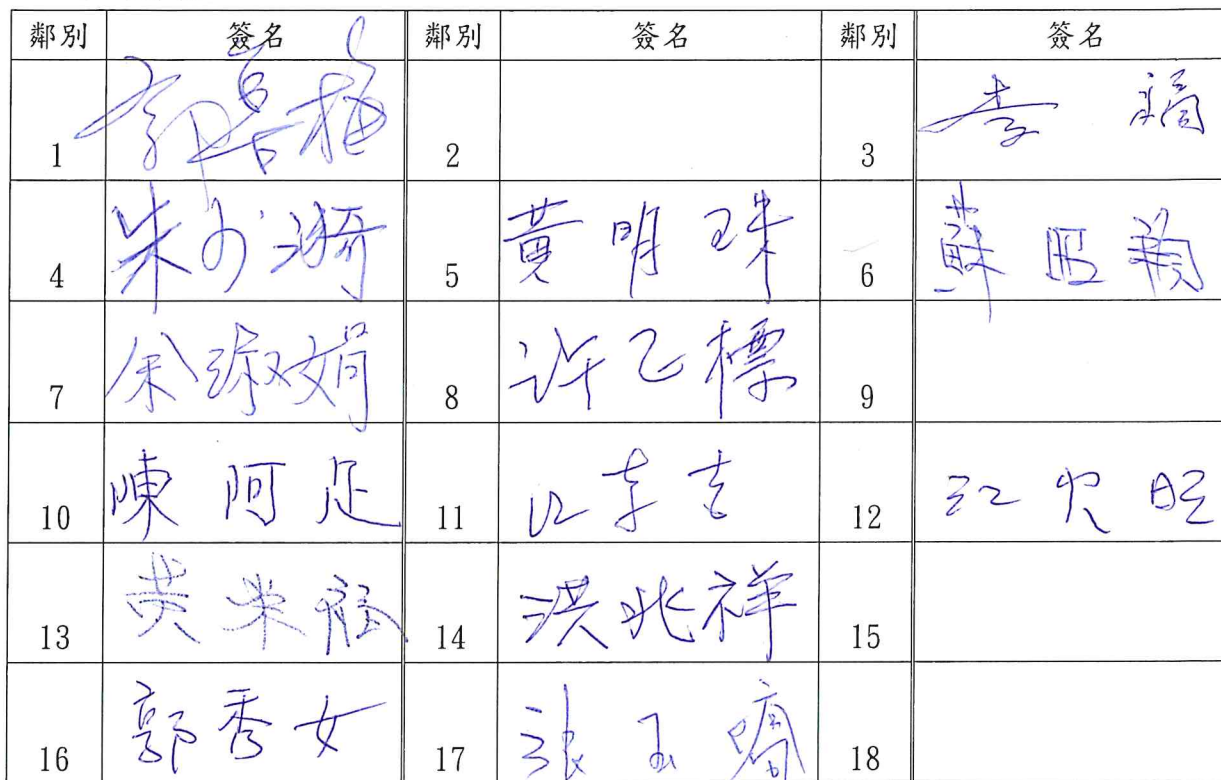 鄰別 簽名 鄰別 簽名 鄰別 簽名
1 郭 梅 2 3 李
4 朱 5 黃明珠 6 蘇
7 余淑娟 8 許乙標 9
10 陳阿足 11 江 吉 12 江 旺
13 黃 14 洪兆祥 15
16 郭秀女 17 張玉 18